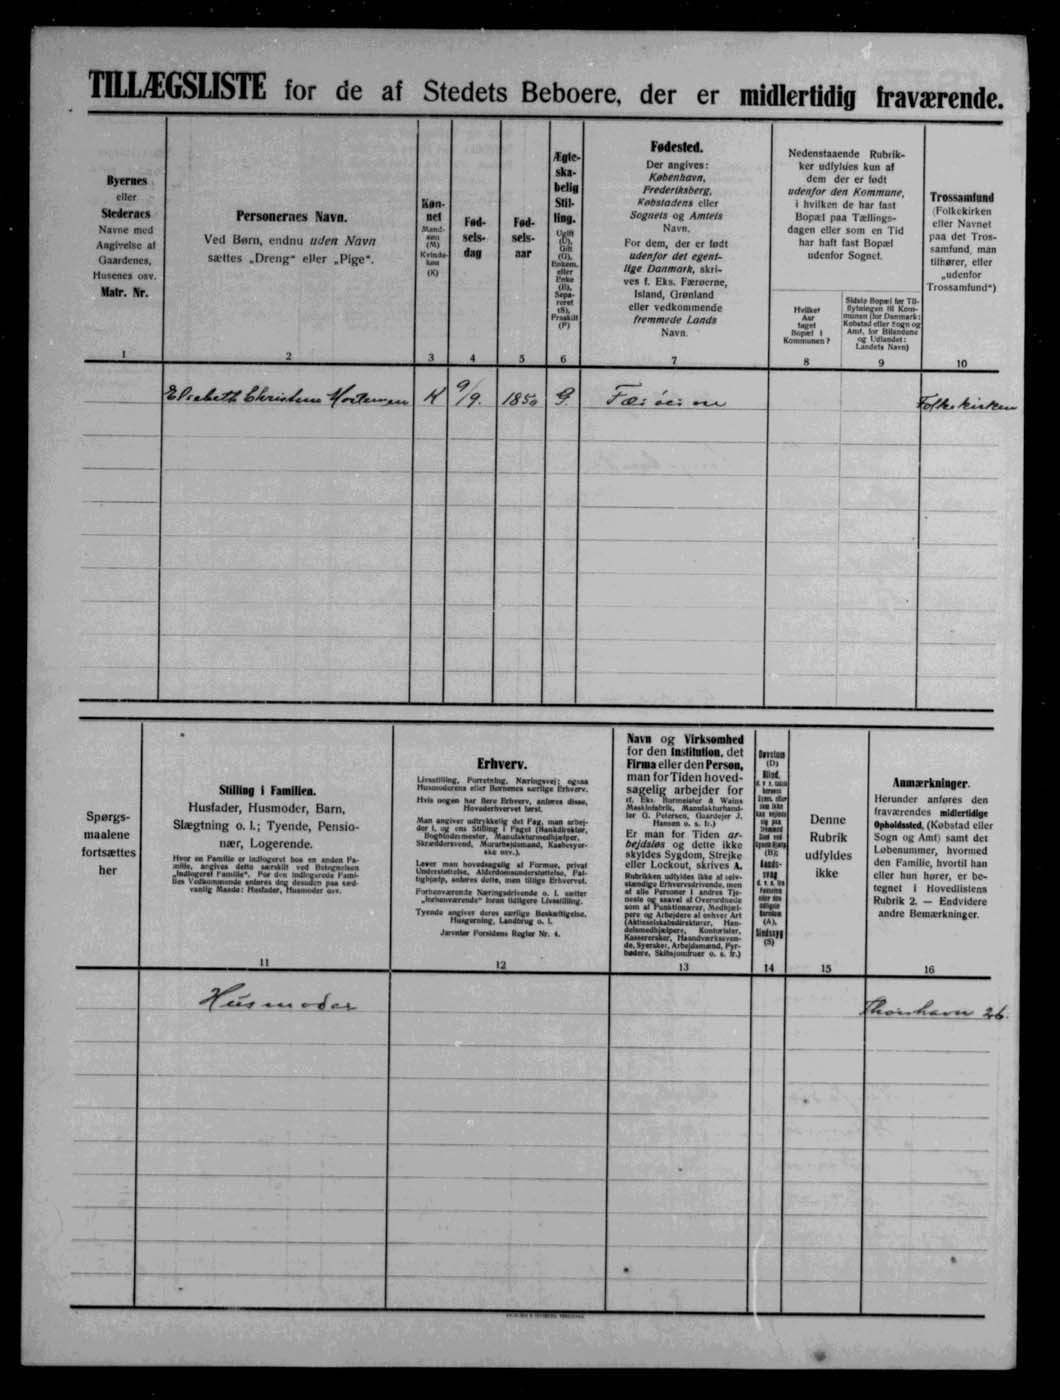 TILLÆGSLISTE for de af Stedets Beboere, der er midlertidig fraværende.
Byernes
eller
Stedernes
Navne med
Angivelse af
Gaardenes,
Husenes osv.
Matr. Nr.
1
Personernes Navn.
Ved Børn, endnu uden Navn
sættes „Dreng“ eller „Pige“.
2
Køn-
net
Mand-
køn
(M)
Kvinde-
køn
(K)
3
Fød-
sels-
dag
4
Fød-
sels-
aar
5
Ægte-
ska-
belig
Stil-
ling.
Ugift
(U),
Gift
(G),
Enkem.
eller
Enke
(E),
Sepa-
reret
(S),
Fraskilt
(F)
6
Fødested.
Der angives:
København,
Frederiksberg,
Købstadens eller
Sognets og Amtets
Navn.
For dem, der er født
udenfor det egent-
lige Danmark, skri-
ves f. Eks. Færøerne,
Island, Grønland
eller vedkommende
fremmede Lands
Navn.
7
Nedenstaaende Rubrik-
ker udfyldes kun af
dem der er født
udenfor den Kommune,
i hvilken de har fast
Bopæl paa Tællings-
dagen eller som en Tid
har haft fast Bopæl
udenfor Sognet.
Hvilket
Aar
taget
Bopæl i
Kommunen?
8
Sidste Bopæl før Til-
flytningen til Kom-
munen (for Danmark:
Købstad eller Sogn og
Amt, for Bilandene
og Udlandet:
Landets Navn)
9
Trossamfund
(Folkekirken
eller Navnet
paa det Tros-
samfund, man
tilhører, eller
„udenfor
Trossamfund“)
10
Elsebeth Christine Mortensen K 9/9. 1850 G. Færøerne Folkekirken
Spørgs-
maalene
fortsættes
her
Stilling i Familien.
Husfader, Husmoder, Barn,
Slægtning o. l.; Tyende, Pensio-
nær, Logerende.
Hvor en Familie er indlogeret hos en anden Fa-
milie, angives dette særskilt ved Betegnelsen
„Indlogeret Familie“. For den indlogerede Fami-
lies Vedkommende anføres dog desuden paa sæd-
vanlig Maade: Husfader, Husmoder osv.
11
Erhverv.
Livsstilling, Forretning, Næringsvej; ogsaa
Husmoderens eller Børnenes særlige Erhverv.
Hvis nogen har flere Erhverv, anføres disse,
Hovederhvervet først.
Man angiver udtrykkelig det Fag, man arbej-
der i, og ens Stilling i Faget (Bankdirektør,
Bogbindermester, Manufakturmedhjælper,
Skræddersvend, Murarbejdsmand, Kaabesyer-
ske osv.).
Lever man hovedsagelig af Formue, privat
Understøttelse, Alderdomsunderstøttelse, Fat-
tighjælp, anføres dette, men tillige Erhvervet.
Forhenværende Næringsdrivende o. l. sætter
„forhenværende“ foran tidligere Livsstilling.
Tyende angiver deres særlige Beskæftigelse,
Husgerning, Landbrug o. l.
Jævnfør Forsidens Regler Nr. 4.
12
Navn og Virksomhed
for den Institution, det
Firma eller den Person,
man for Tiden hoved-
sagelig arbejder for
(f. Eks. Burmeister & Wains
Maskinfabrik, Manufakturhand-
ler G. Petersen, Gaardejer J.
Hansen o. s. fr.)
Er man for Tiden ar-
bejdsløs og dette ikke
skyldes Sygdom, Strejke
eller Lockout, skrives A.
Rubrikken udfyldes ikke af selv-
stændige Erhvervsdrivende, men
af alle Personer i andres Tje-
neste og saavel af Overordnede
som af Funktionærer, Medhjæl-
pere og Arbejdere af enhver Art
(Aktieselskabsdirektører, Han-
delsmedhjælpere, Kontorister,
Kasserersker, Haandværkssven-
de, Syersker, Arbejdsmænd, Fyr-
bødere, Skibsjomfruer o. s. fr.)
13
Døvstum
(D)
Blind,
14
Denne
Rubrik
udfyldes
ikke
15
Anmærkninger.
Herunder anføres den
fraværendes midlertidige
Opholdssted, (Købstad eller
Sogn og Amt) samt det
Løbenummer, hvormed
den Familie, hvortil han
eller hun hører, er be-
tegnet i Hovedlistens
Rubrik 2. — Endvidere
andre Bemærkninger.
16
Husmoder Thorshavn 26.